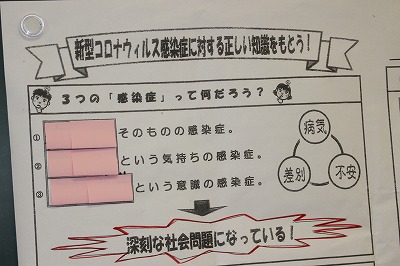 新型コロナウィルス感染症に対する正しい知識をもとう！
３つの「感染症」って何だろう？
① そのものの感染症。
② という気持ちの感染症。
③ という意識の感染症。
病気
差別
不安
深刻な社会問題になっている！